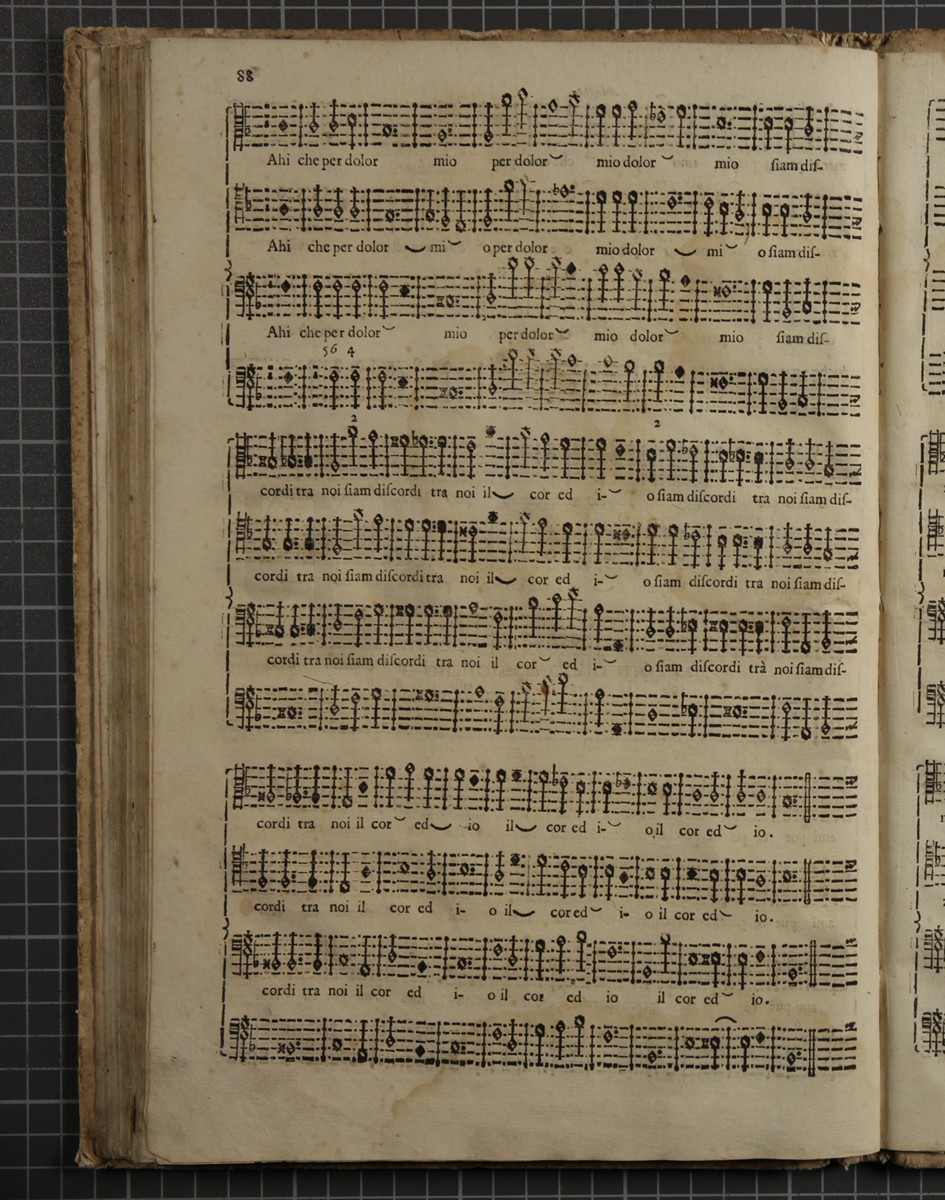 88
Ahi che per dolor mio per dolor mio dolor mio ſiam diſ-
Ahi che per dolor mi o per dolor mio dolor mi o ſiam diſ-
Ahi che per dolor mio per dolor mio dolor mio ſiam diſ-
56 4
2 2
cordi tra noi ſiam diſcordi tra noi il cor ed i- o ſiam diſcordi tra noi ſiam diſ-
cordi tra noi ſiam diſcordi tra noi il cor ed i- o ſiam diſcordi tra noi ſiam diſ-
cordi tra noi ſiam diſcordi tra noi il cor ed i- o ſiam diſcordi trà noi ſiam diſ-
cordi tra noi il cor ed io il cor ed i- o il cor ed io.
cordi tra noi il cor ed i- o il cor ed i- o il cor ed io.
cordi tra noi il cor ed i- o il cor ed io il cor ed io.